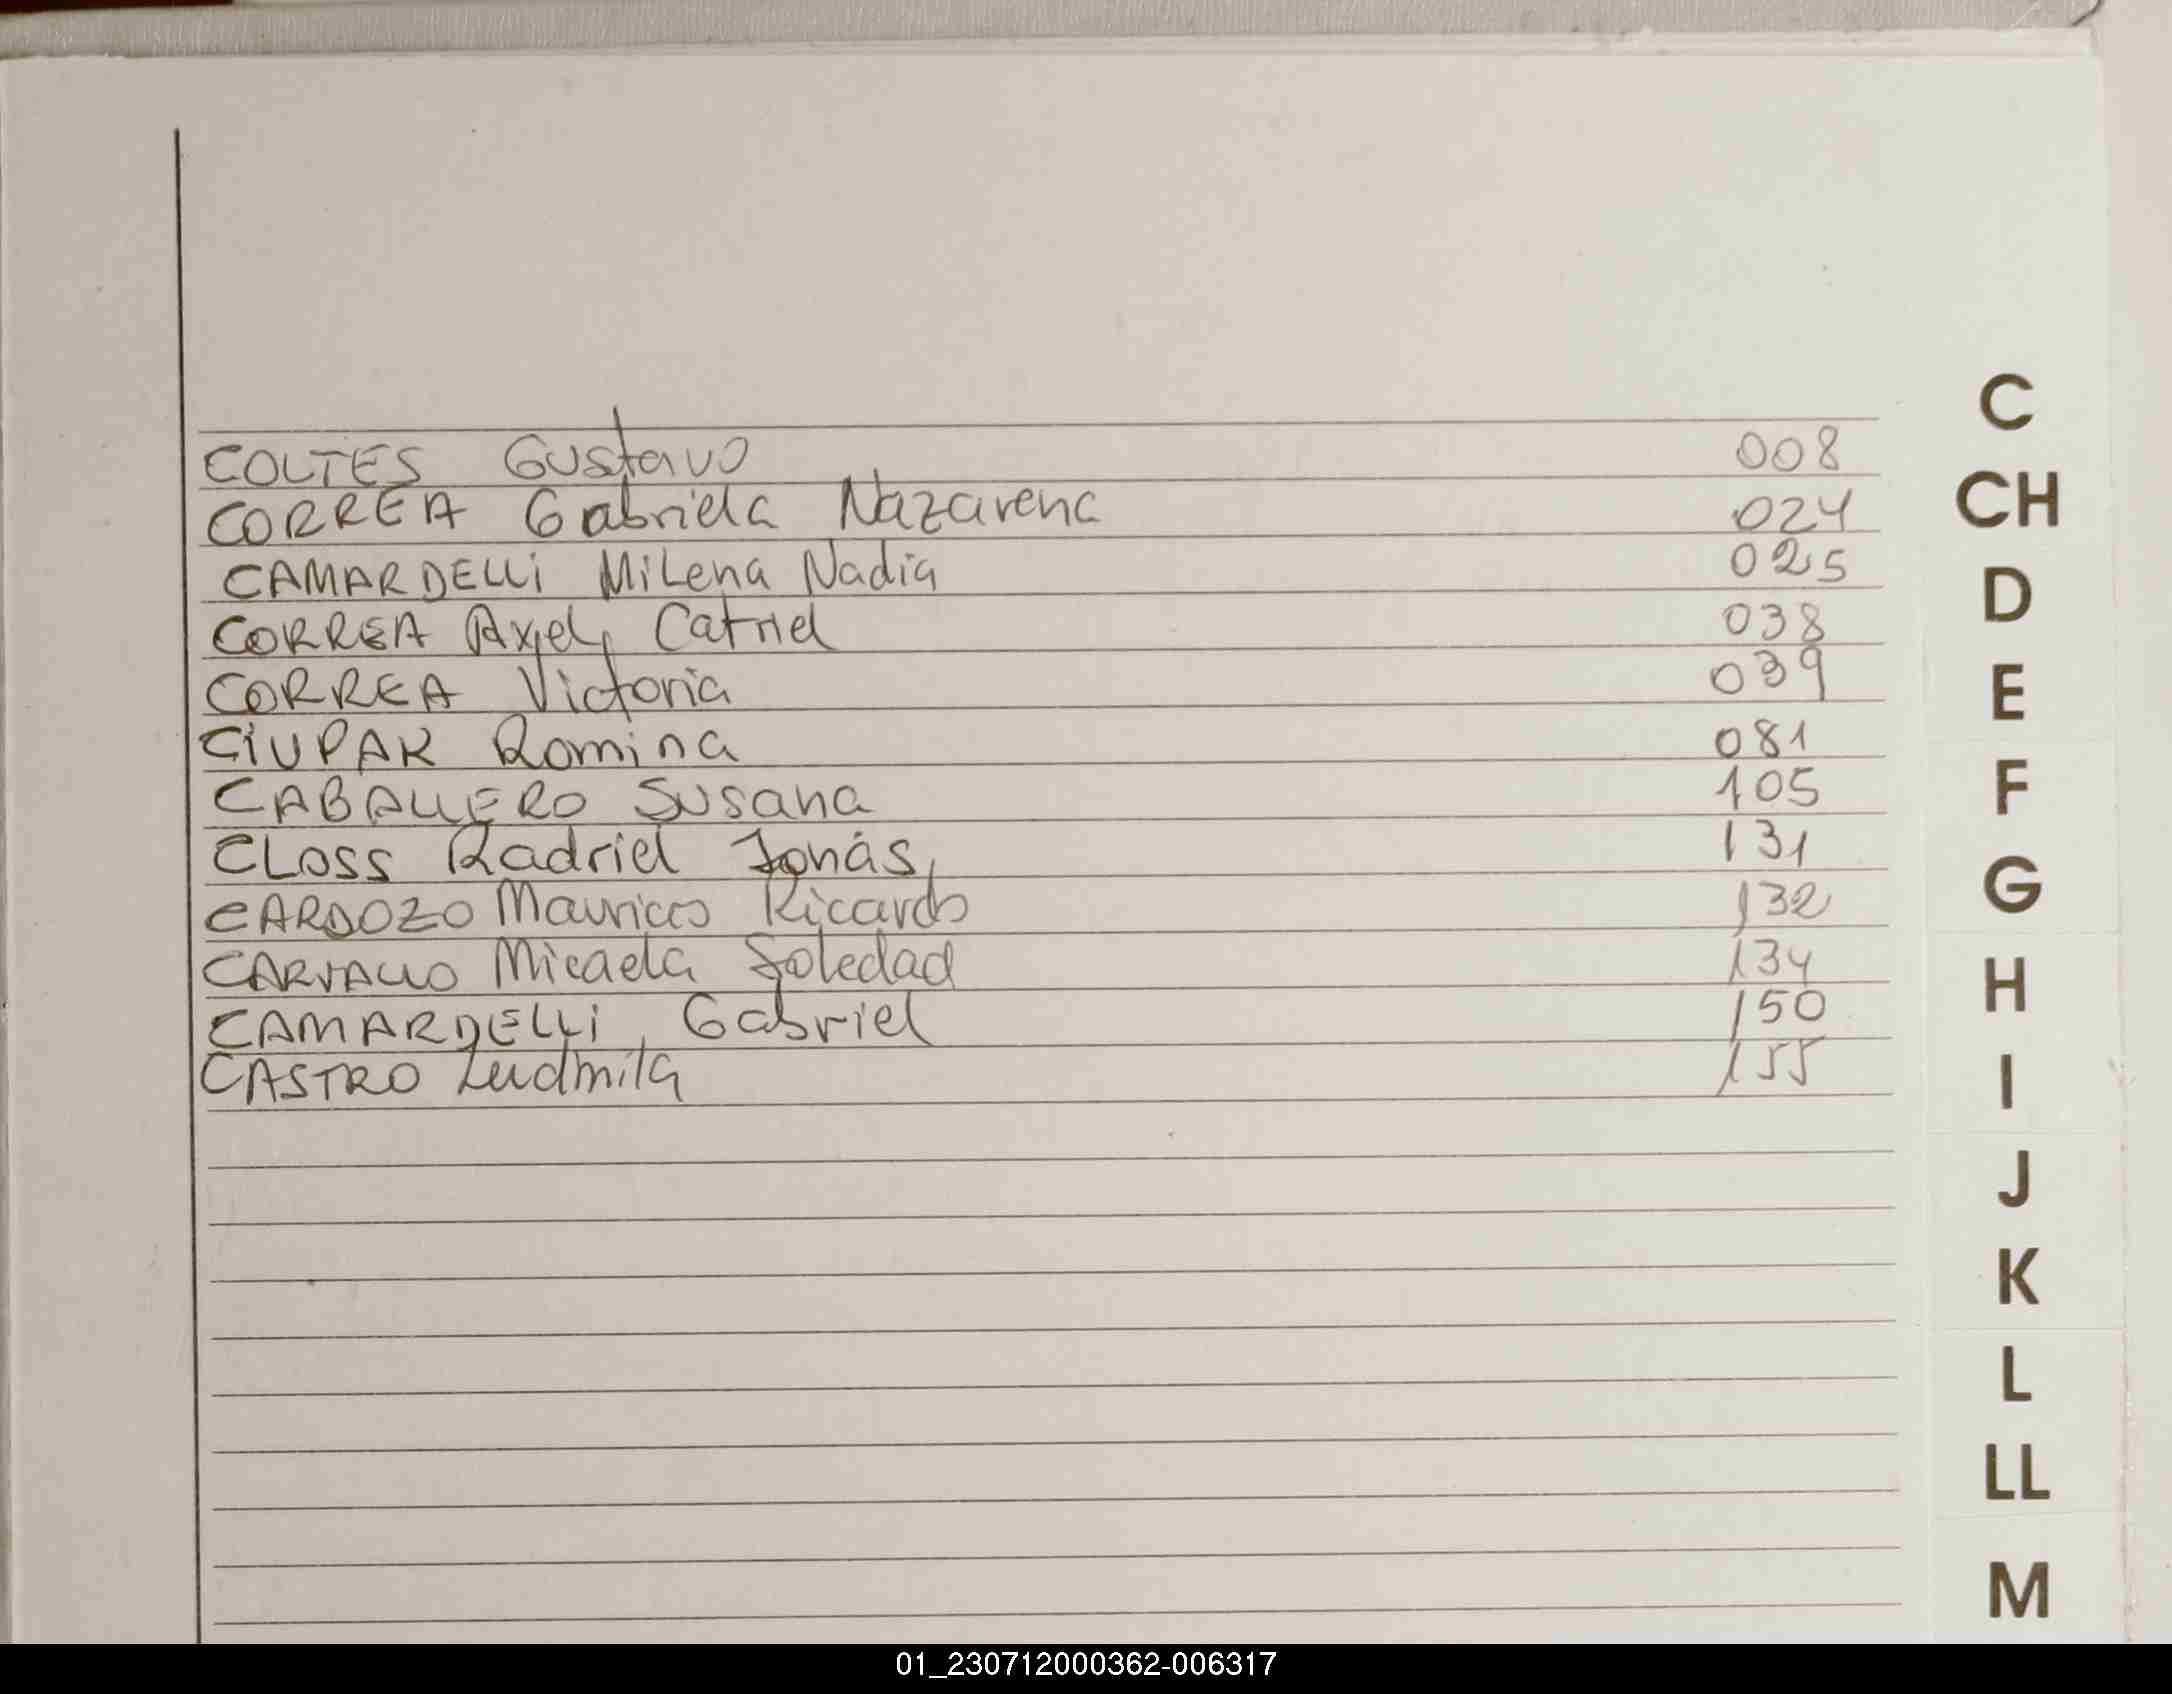 COLTES Gustavo 008
CORREA Gabriela Nazarena 024
CAMARDELLi MiLena Nadia 025
CORREA Axel, Catriel 038
CORREA Victoria 039
CIUPAK Romina 081
CABALLERO Susana 105
CLOSS Radriel Jonás, 131
CARDOZO Mauricio Ricardo 132
CARVALLO Micaela Soledad 134
CAMARDELLi, Gabriel 150
CASTRO Ludmila 155
C
CH
D
E
F
G
H
I
J
K
L
LL
M
01_230712000362-006317